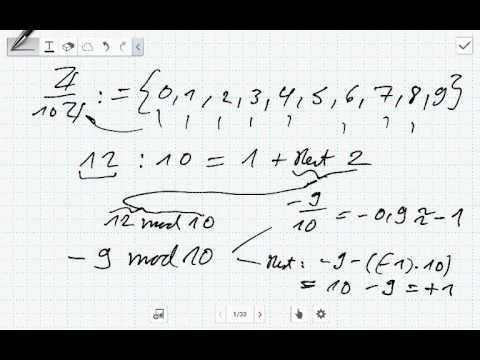 ℤ/10ℤ := {0, 1, 2, 3, 4, 5, 6, 7, 8, 9}
12 : 10 = 1 + Rest 2
12 mod 10
-9/10 = -0,9 ≈ -1
-9 mod 10
Rest: -9 - (-1) · 10)
= 10 - 9 = +1
1/33